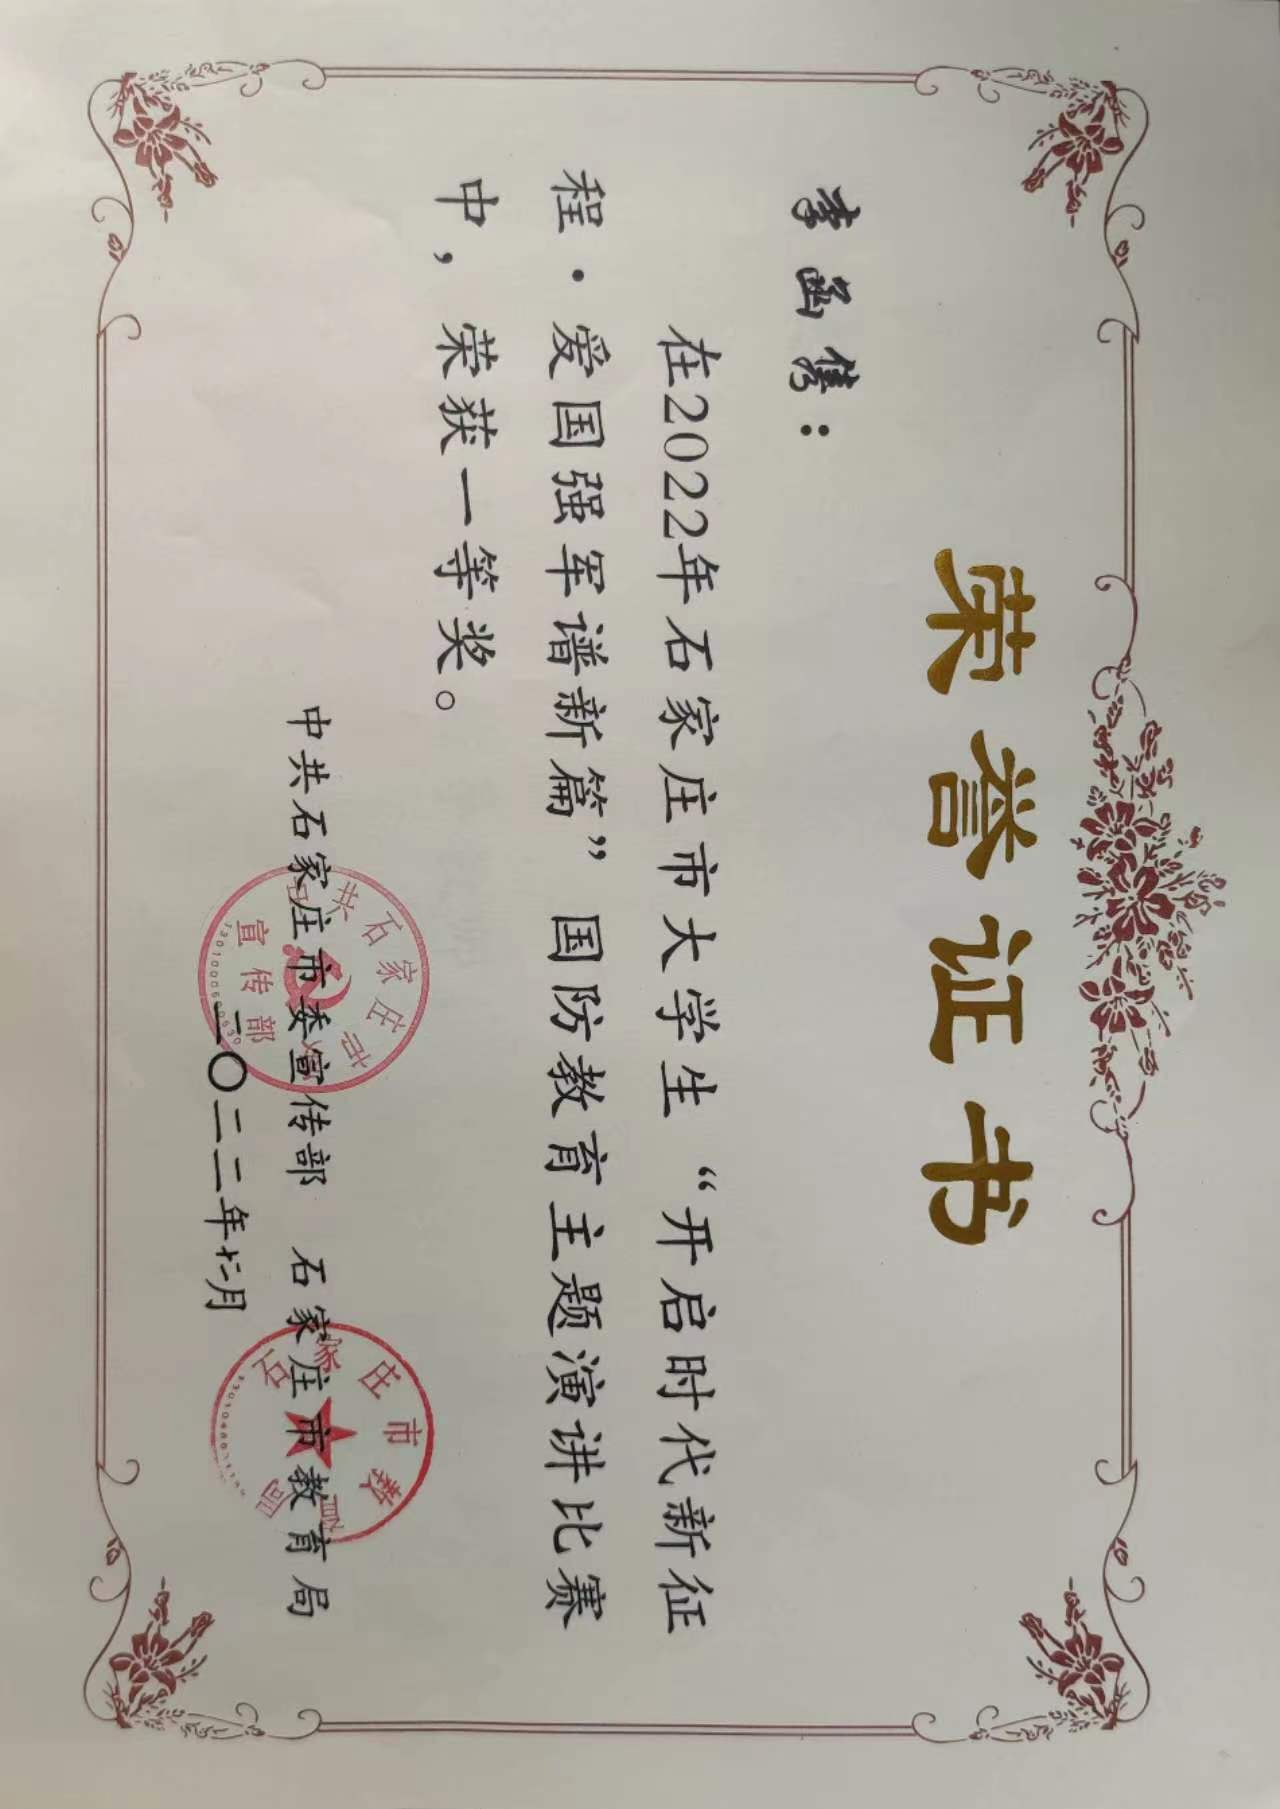 荣誉证书
李函隽：
在2022年石家庄市大学生“开启时代新征
程·爱国强军谱新篇”国防教育主题演讲比赛
中，荣获一等奖。
中共石家庄市委宣传部 石家庄市教育局
二〇二二年十二月
中共石家庄市
宣传部
石家庄市教育局